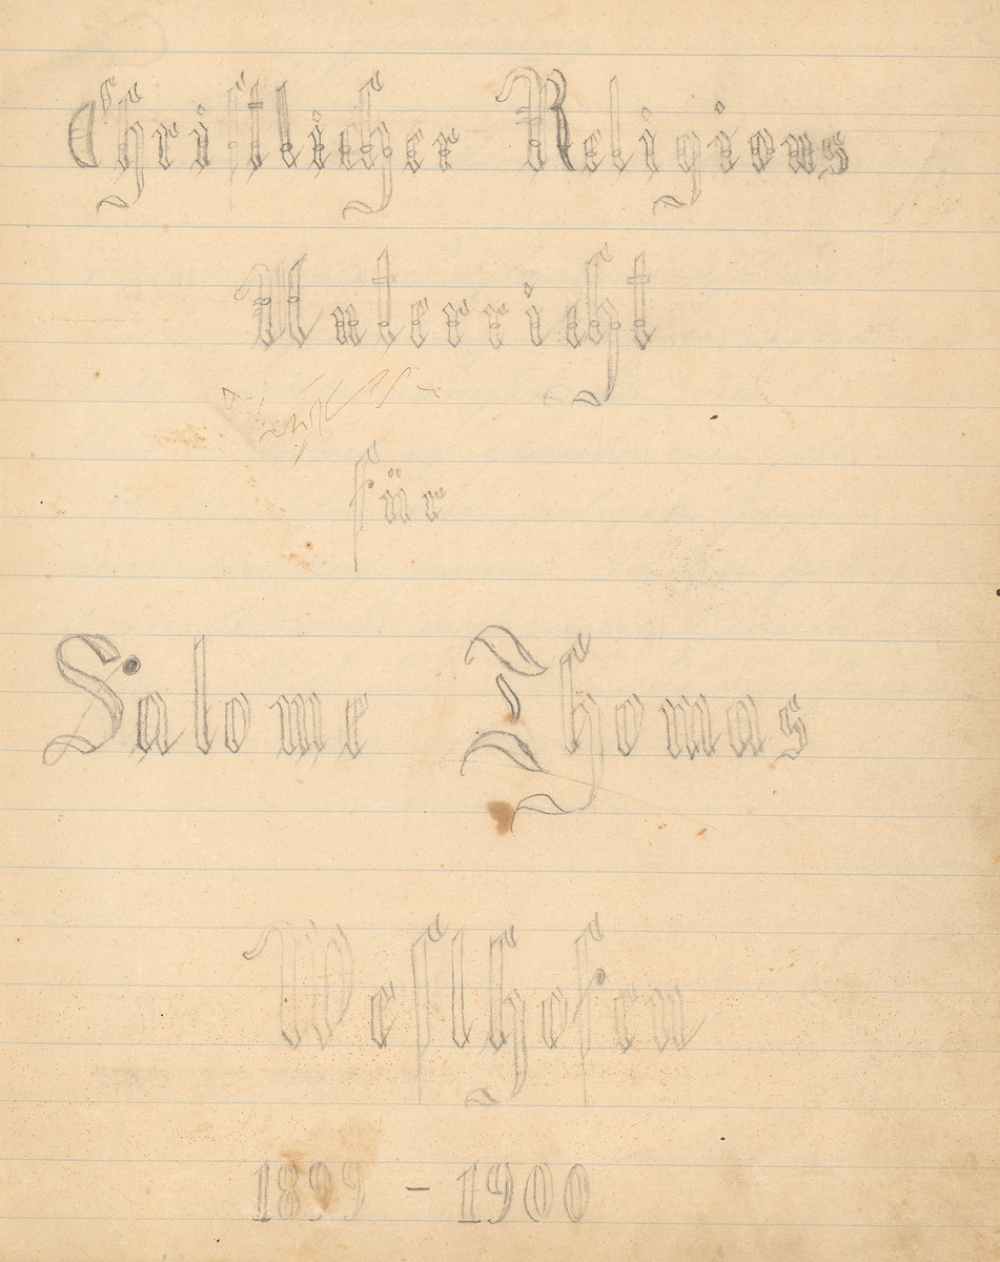 Christlicher Religions
Unterricht
für
Salome Thomas
Westhofen
1899 - 1900